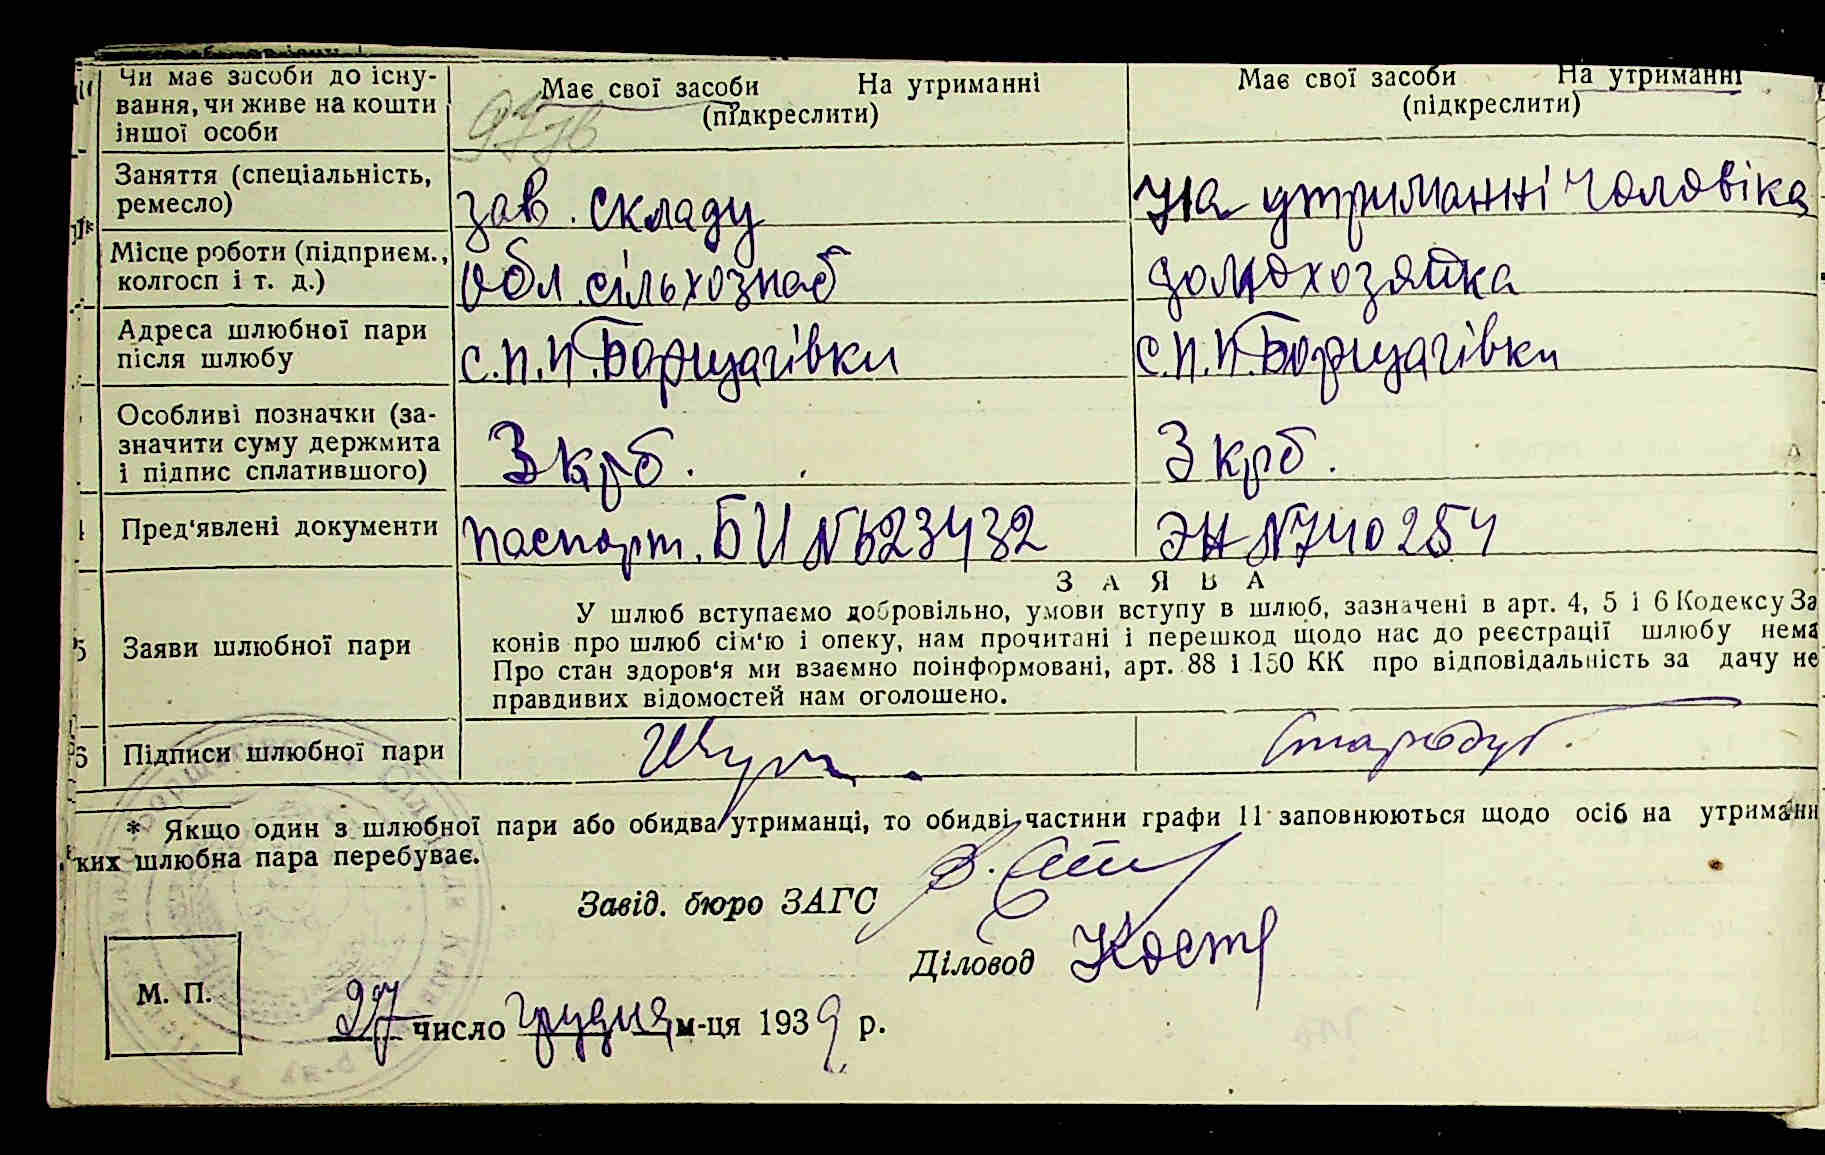 Чи має засоби до існу-
вання, чи живе на кошти
іншої особи
Має свої засоби На утриманні
(підкреслити)
Має свої засоби На утриманні
(підкреслити)
Заняття (спеціальність,
ремесло)
зав. складу
На утриманні чоловіка
Місце роботи (підприєм.,
колгосп і т. д.)
Обл. сільхознаб
домохозяйка
Адреса шлюбної пари
після шлюбу
с.П.П.Борщагівки
с.П.П.Борщагівки
Особливі позначки (за-
значити суму держмита
і підпис сплатившого)
3 крб.
3 крб.
Пред'явлені документи
паспорт. БИ №623432
ЭН №740254
ЗАЯВА
5 Заяви шлюбної пари
У шлюб вступаємо добровільно, умови вступу в шлюб, зазначені в арт. 4, 5 і 6 Кодексу За
конів про шлюб сім'ю і опеку, нам прочитані і перешкод щодо нас до реєстрації шлюбу нема
Про стан здоров'я ми взаємно поінформовані, арт. 88 і 150 КК про відповідальність за дачу не
правдивих відомостей нам оголошено.
6 Підписи шлюбної пари
Стародуб.
* Якщо один з шлюбної пари або обидва утриманці, то обидві частини графи 11 заповнюються щодо осіб на утриманн
ких шлюбна пара перебуває.
Завід. бюро ЗАГС
Діловод Кост
М. П.
27 число грудня м-ця 1939 р.